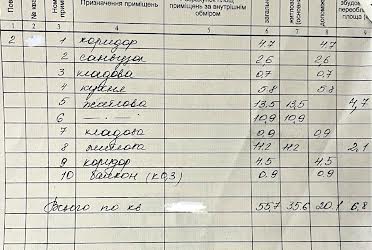 Пов
№ кв
Номер прим
Призначення приміщень
приміщень за внутрішнім обміром
загальна
житлова (основна)
допоміжна
площа
3 4 5 6 7 8 9
2 1 коридор 4,7 4,7
2 санвузол 2,6 2,6
3 кладова 0,7 0,7
4 кухня 5.8 5.8
5 житлова 13,5 13,5 4,7
6 —·—·— 10,9 10,9
7 кладова 0,9 0,9
8 житлова 11.2 11.2 2,1
9 коридор 4.5 4.5
10 балкон (к0,3) 0.9 0.9
Всього по кв 55,7 35.6 20.1 6,8